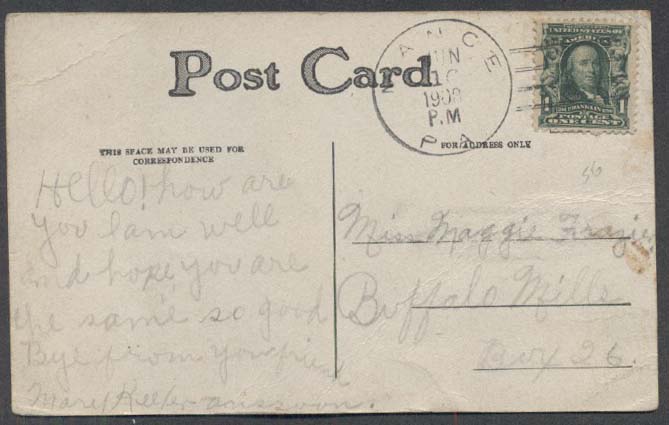 Post Card
MANCE
JUN
16
1908
P.M
PA
UNITED STATES OF AMERICA
FRANKLIN
1 1
POSTAGE
ONE CENT
THIS SPACE MAY BE USED FOR
CORRESPONDENCE
FOR ADDRESS ONLY
56
Hello! how are
you I am well
and hope you are
the same so good
Bye from your friend
Mary Keefer ans soon.
Miss Maggie Frazier
Buffalo Mills
Box 26.